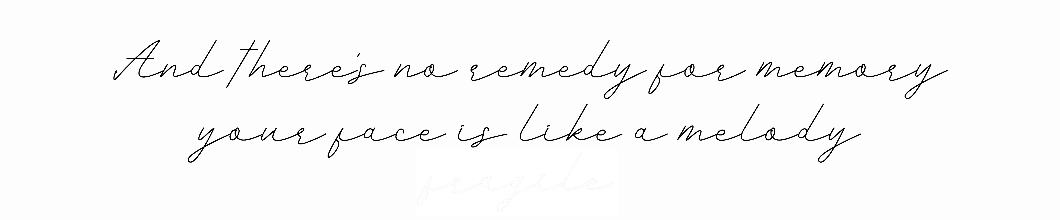 And there's no remedy for memory
your face is like a melody
fragile